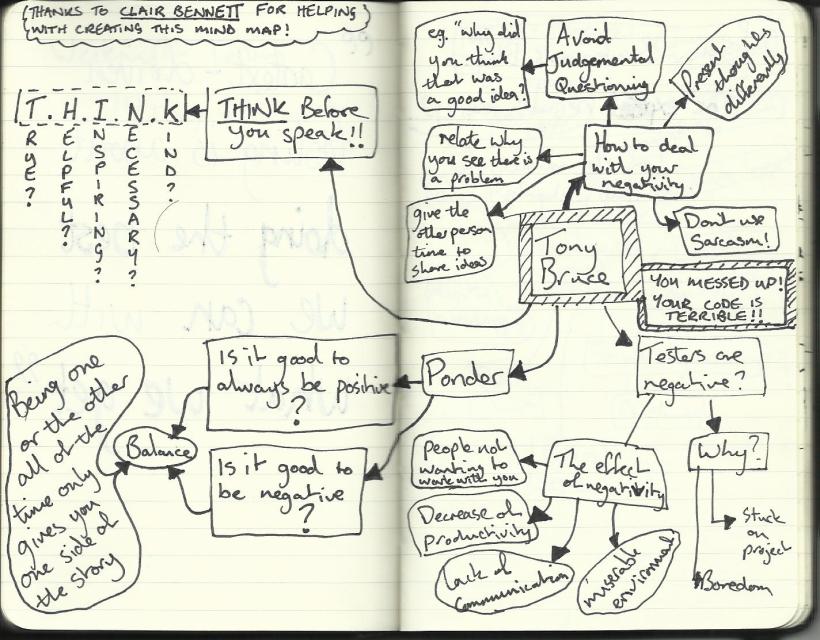 THANKS TO CLAIR BENNETT FOR HELPING
WITH CREATING THIS MIND MAP!
T.H.I.N.K
TRUE?
HELPFUL?
INSPIRING?
NECESSARY?
KIND?
THINK Before
you speak!!
eg. "why did
you think
that was
a good idea?
Avoid
Judgemental
Questioning
Present
thoughts
differently
relate why
you see there is
a problem
How to deal
with your
negativity
give the
other person
time to
share ideas
Dont use
Sarcasm!
Tony
Bruce
YOU MESSED UP!
YOUR CODE IS
TERRIBLE!!
Testers are
negative?
Why?
Stuck
on
project
Boredom
The effect
of negativity
People not
wanting to
work with you
Decrease of
productivity
lack of
communication
miserable
environment
Ponder
Is it good to
always be positive
?
Is it good to
be negative
?
Balance
Being one
or the other
all of the
time only
gives you
one side of
the story